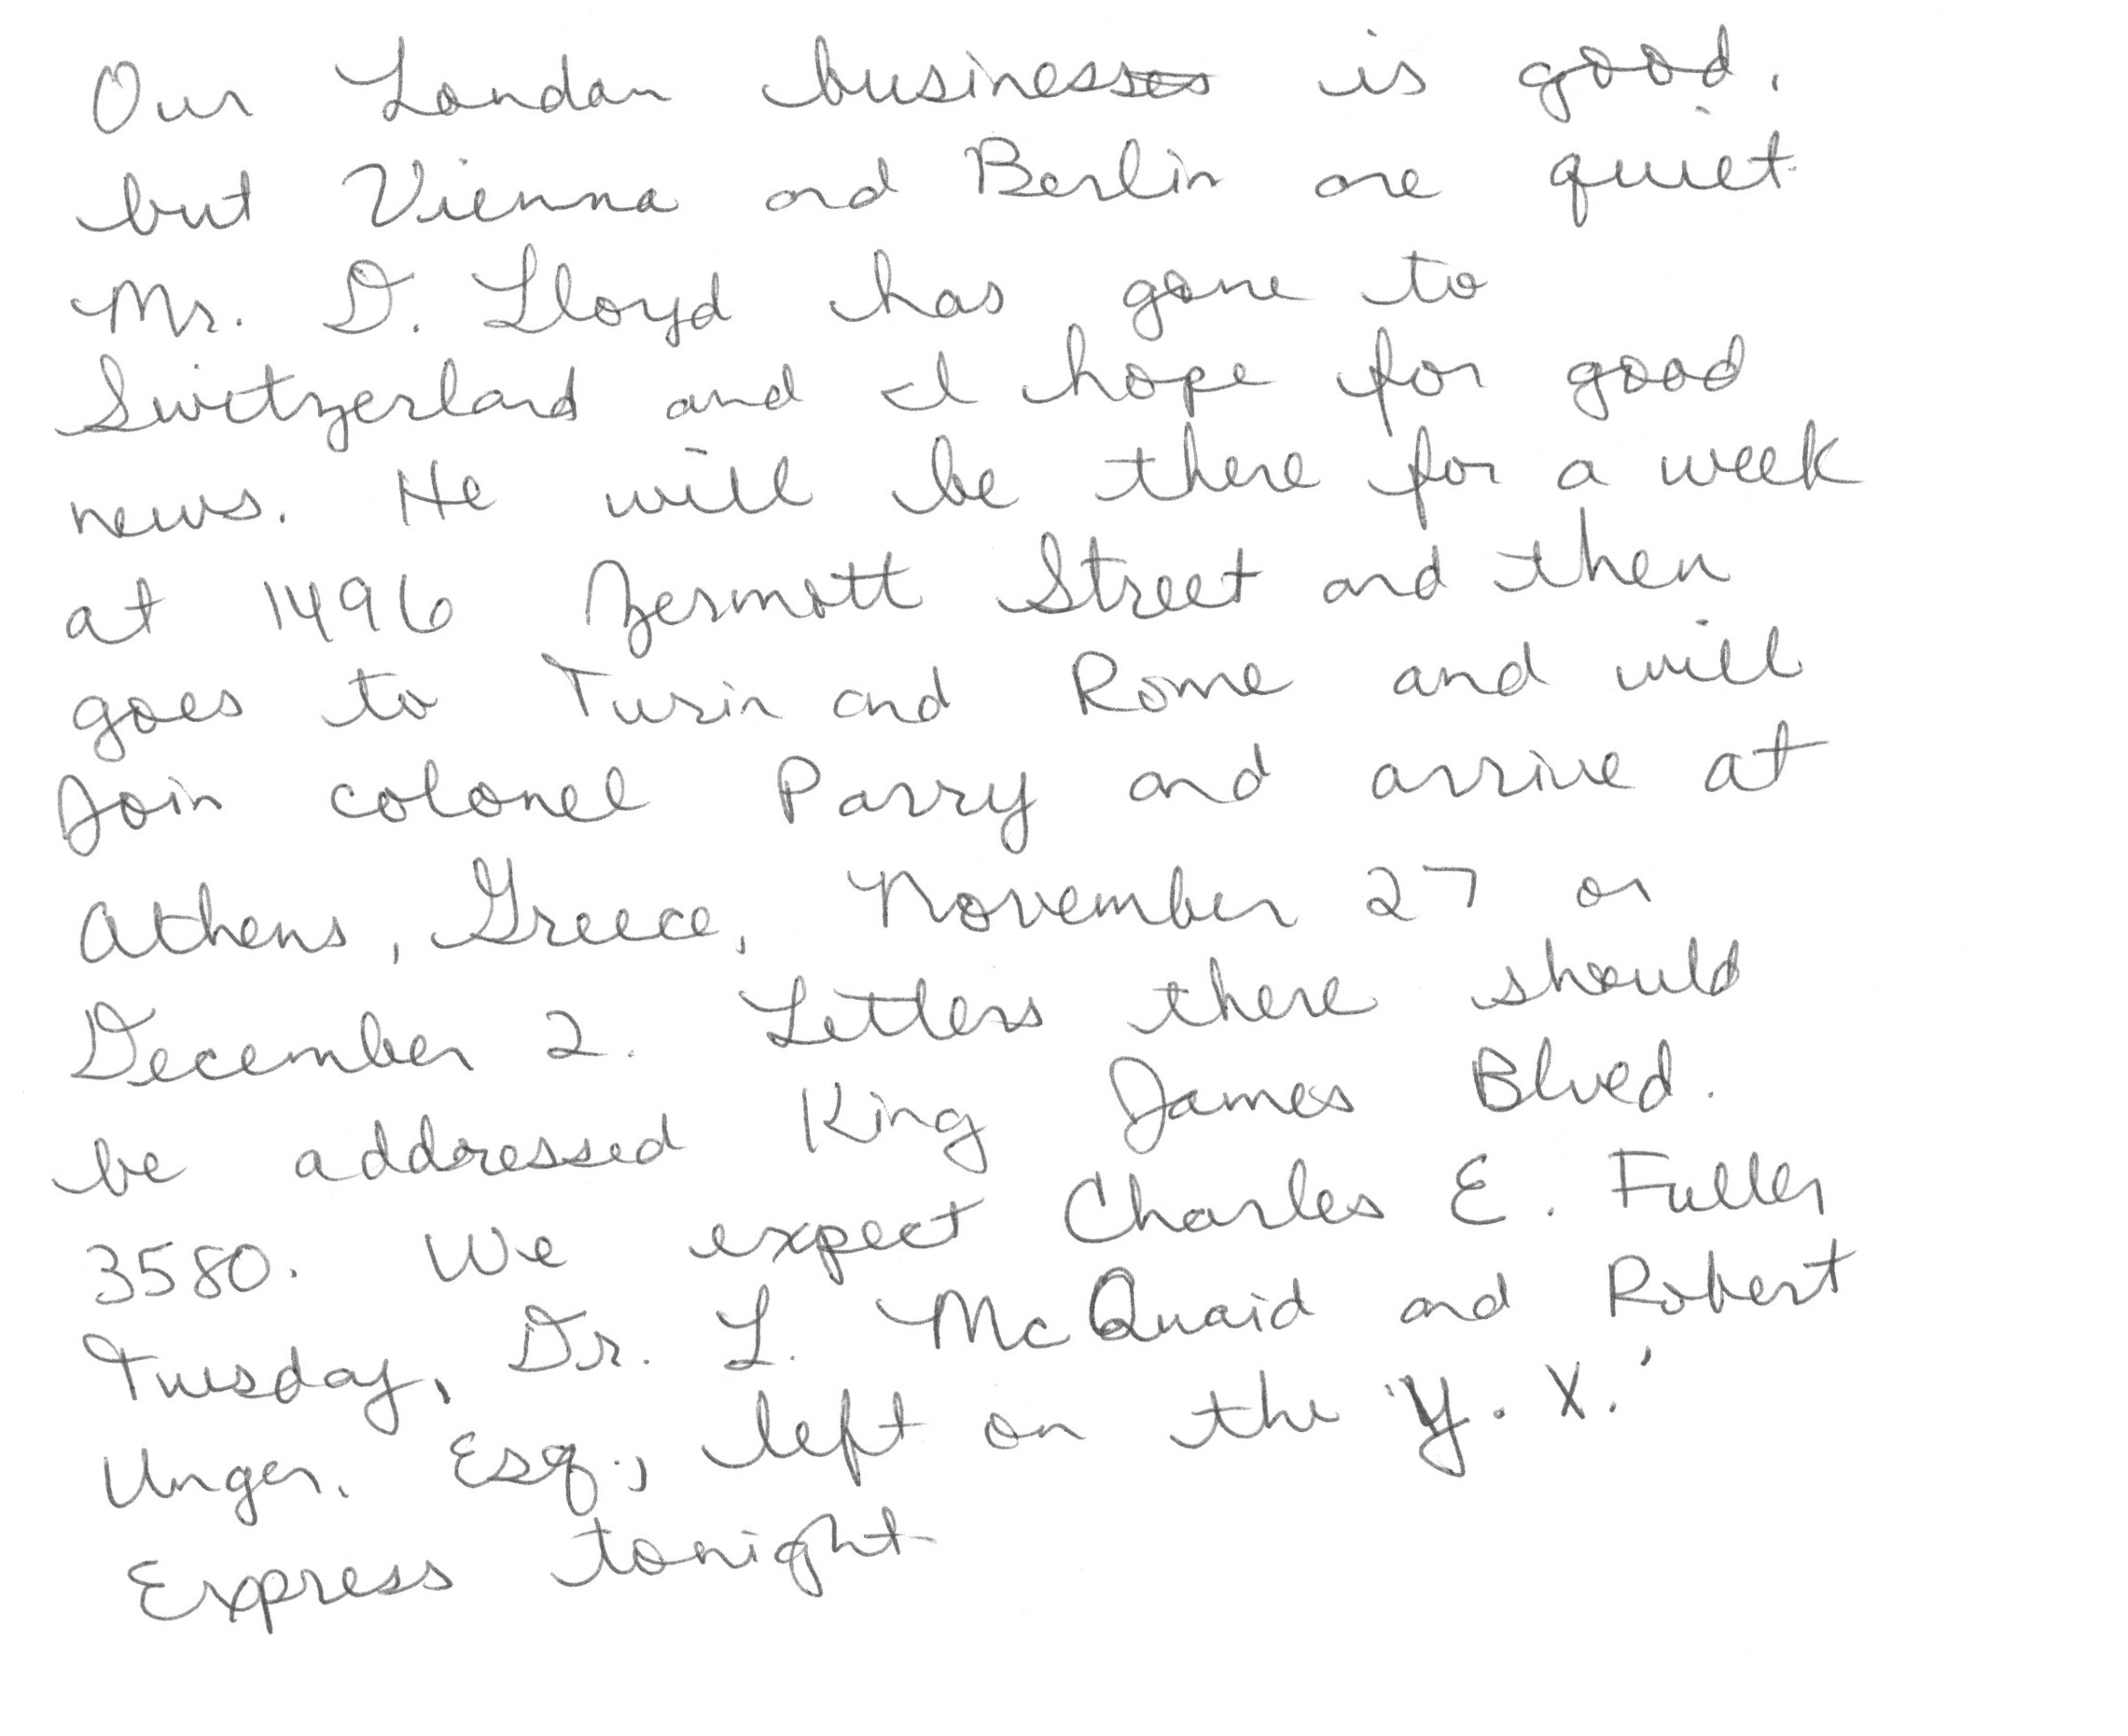 Our London business is good,
but Vienna and Berlin are quiet.
Mr. D. Lloyd has gone to
Switzerland and I hope for good
news. He will be there for a week
at 1496 Zermott Street and then
goes to Turin and Rome and will
Join colonel Parry and arrive at
Athens, Greece, November 27 or
December 2. Letters there should
be addressed King James Blved.
3580. We expect Charles E. Fuller
Tuesday, Dr. L. McQuaid and Robert
Unger, Esq., left on the 'Y. X.'
Express tonight